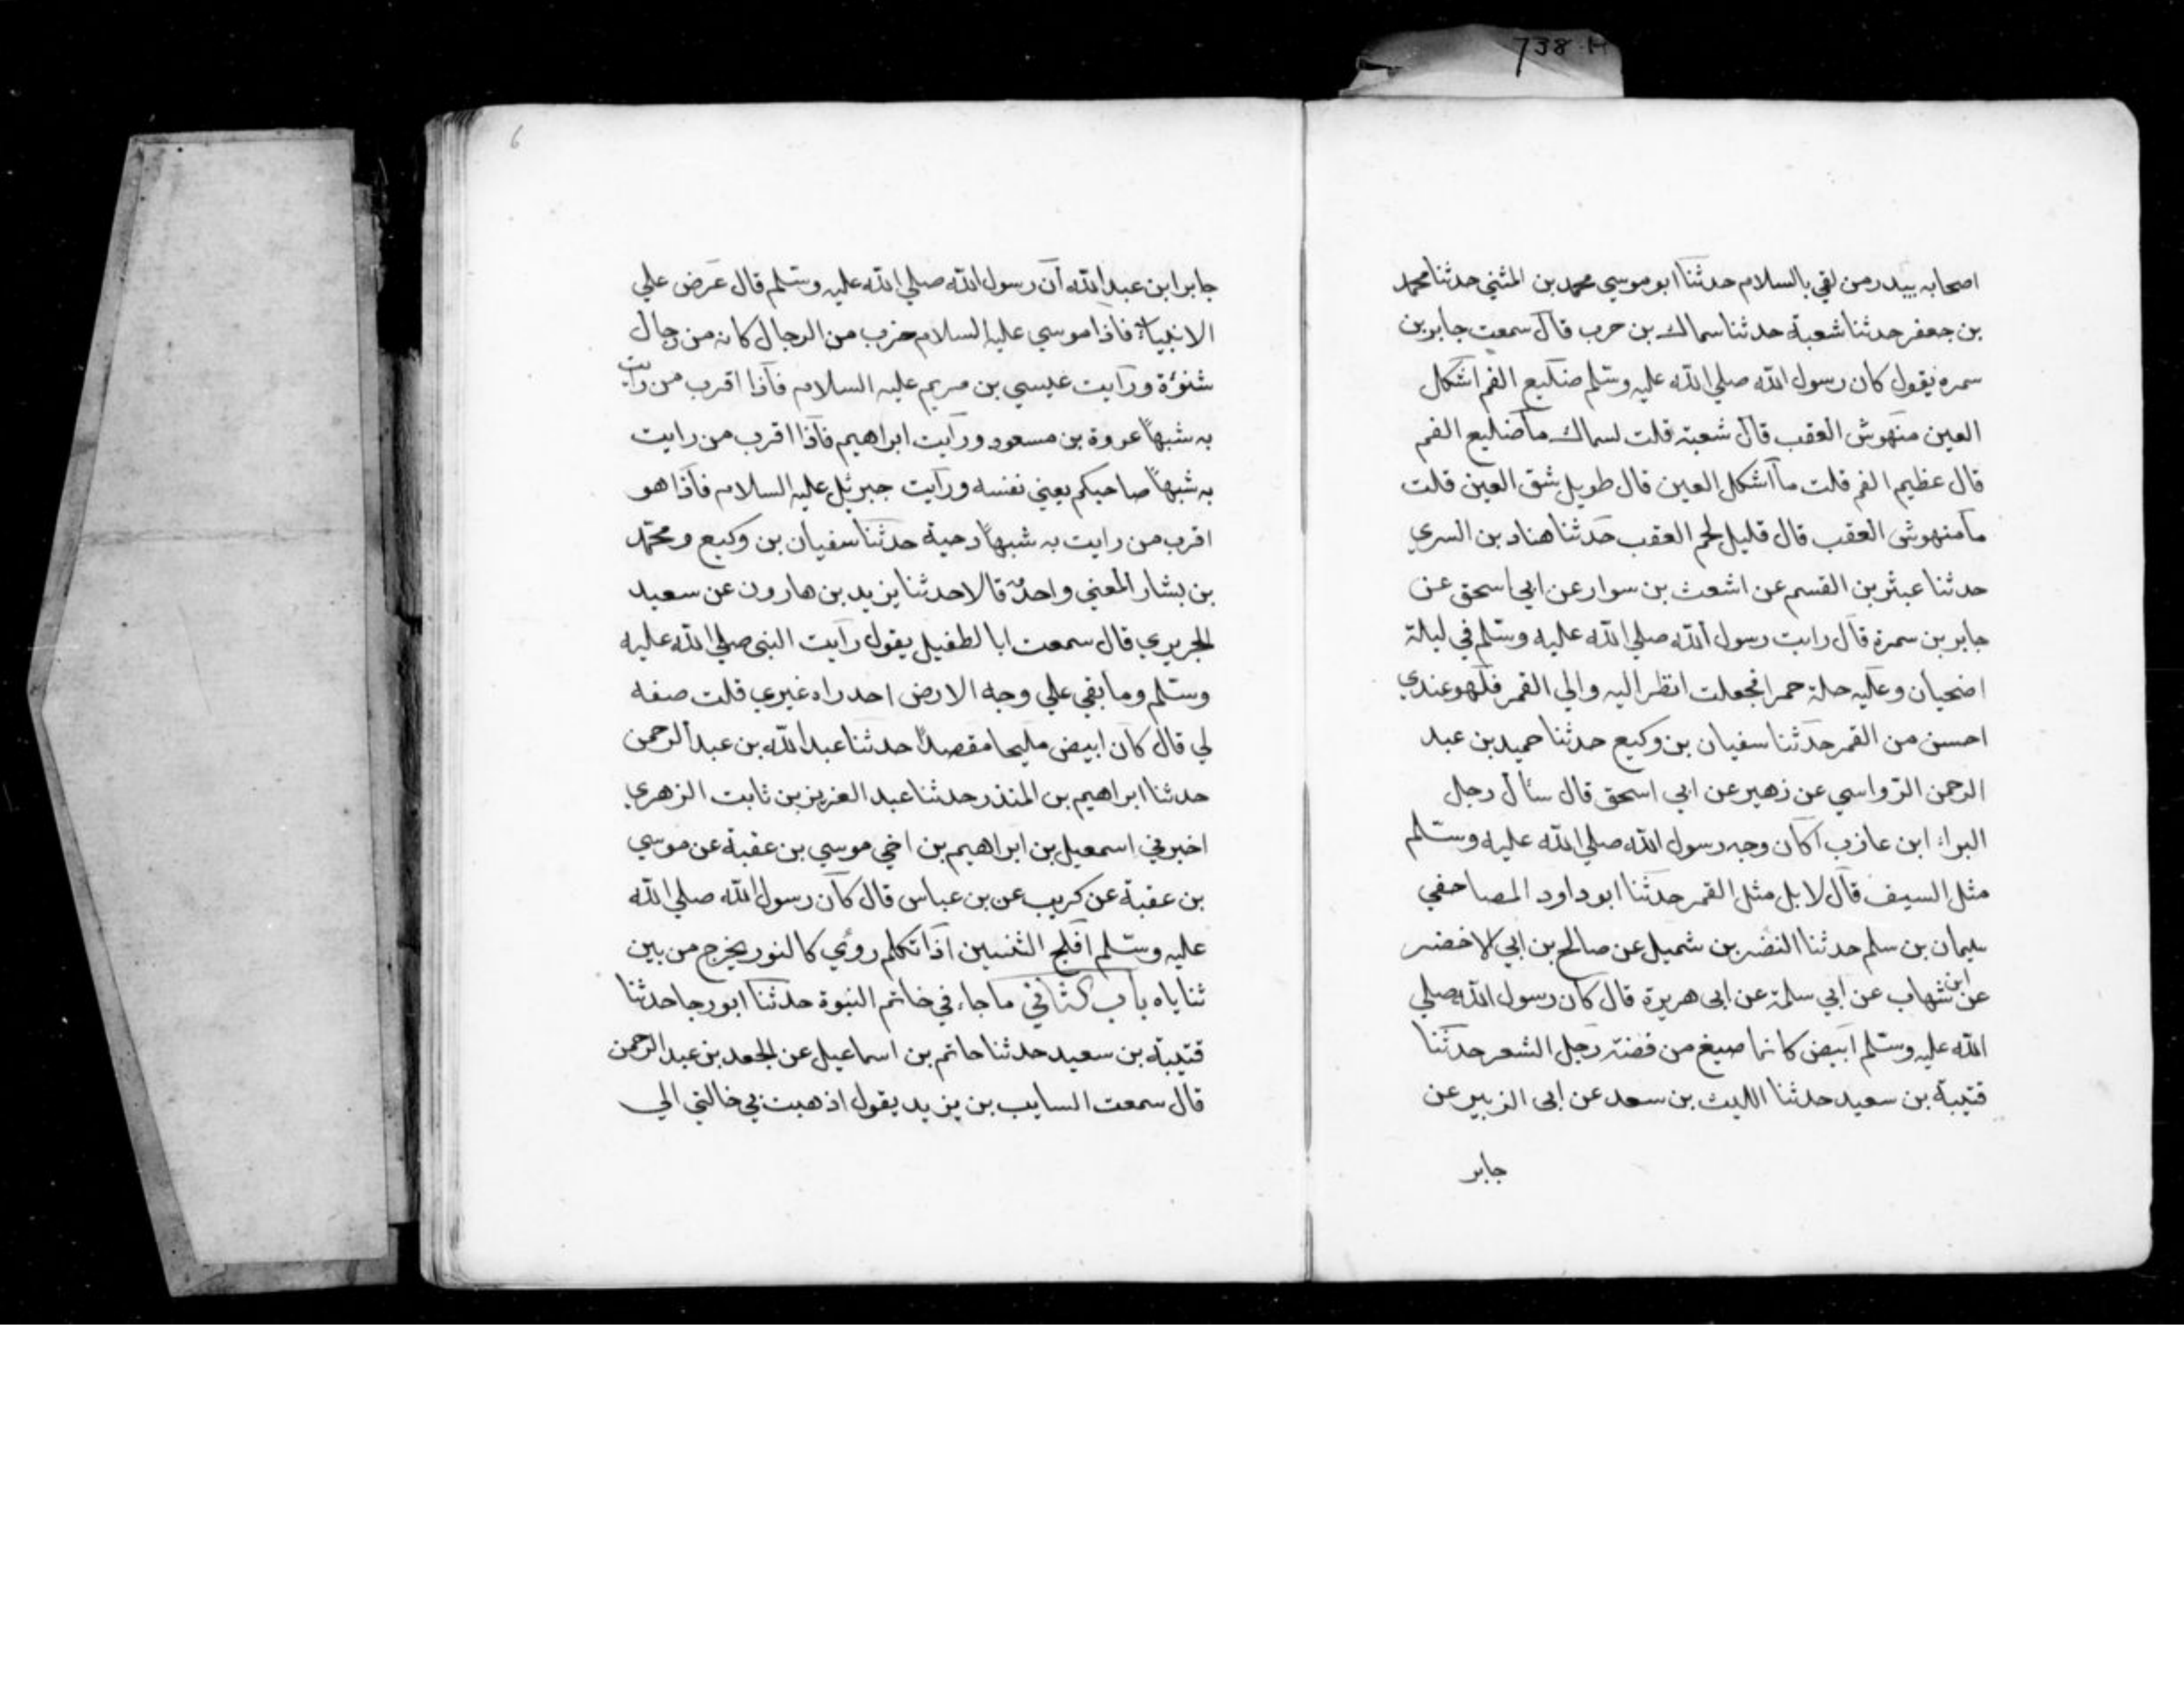 738·H
اصحابه بيدر من لقي بالسلام حدثنا ابو موسي محمد بن المثني حدثنا محمد
بن جعفر حدثنا شعبة حدثنا سماك بن حرب قال سمعت جابر بن
سمره يقول كان رسول الله صلي الله عليه وسلم ضليع الفم اشكل
العين منهوش العقب قال شعبة قلت لسماك ما ضليع الفم
قال عظيم الفم قلت ما اشكل العين قال طويل شق العين قلت
ما منهوش العقب قال قليل لحم العقب حدثنا هناد بن السري
حدثنا عبثر بن القسم عن اشعث بن سوار عن ابي اسحق عن
جابر بن سمرة قال رايت رسول الله صلي الله عليه وسلم في ليلة
اضحيان وعليه حلة حمرا فجعلت انظر اليه والي القمر فلهو عندي
احسن من القمر حدثنا سفيان بن وكيع حدثنا حميد بن عبد
الرحمن الرواسي عن زهير عن ابي اسحق قال سأل رجل
البراء ابن عازب اكان وجه رسول الله صلي الله عليه وسلم
مثل السيف قال لا بل مثل القمر حدثنا ابو داود المصاحفي
سليمان بن سلم حدثنا النضر بن شميل عن صالح بن ابي لاخضر
عن ابن شهاب عن ابي سلمة عن ابي هريرة قال كان رسول الله صلي
الله عليه وسلم ابيض كانما صيغ من فضة رجل الشعر حدثنا
قتيبة بن سعيد حدثنا الليث بن سعد عن ابي الزبير عن
جابر
6
جابر ابن عبد الله ان رسول الله صلي الله عليه وسلم قال عرض علي
الانبياء فاذا موسي عليه السلام ضرب من الرجال كانه من رجال
شنؤة ورايت عيسي بن مريم عليه السلام فاذا اقرب من رايت
به شبهاً عروة بن مسعود ورايت ابراهيم فاذا اقرب من رايت
به شبهاً صاحبكم يعني نفسه ورايت جبرئل عليه السلام فاذا هو
اقرب من رايت به شبهاً دحية حدثنا سفيان بن وكيع ومحمد
بن بشار المعني واحد قالا حدثنا يزيد بن هارون عن سعيد
الجريري قال سمعت ابا لطفيل يقول رايت النبي صلي الله عليه
وسلم وما بقي علي وجه الارض احد راه غيري قلت صفه
لي قال كان ابيض مليحا مقصداً حدثنا عبد الله بن عبد الرحمن
حدثنا ابراهيم بن المنذر حدثنا عبد العزيز بن ثابت الزهري
اخبرني اسمعيل بن ابراهيم بن اخي موسي بن عقبة عن موسي
بن عقبة عن كريب عن بن عباس قال كان رسول الله صلي الله
عليه وسلم افلج الثنيين اذا تكلم روي كالنور يخرج من بين
ثناياه باب الثاني ما جاء في خاتم النبوة حدثنا ابو رجا حدثنا
قتيبة بن سعيد حدثنا حاتم بن اسماعيل عن الجعد بن عبد الرحمن
قال سمعت السايب بن يزيد يقول اذهبت بي خالتي الي